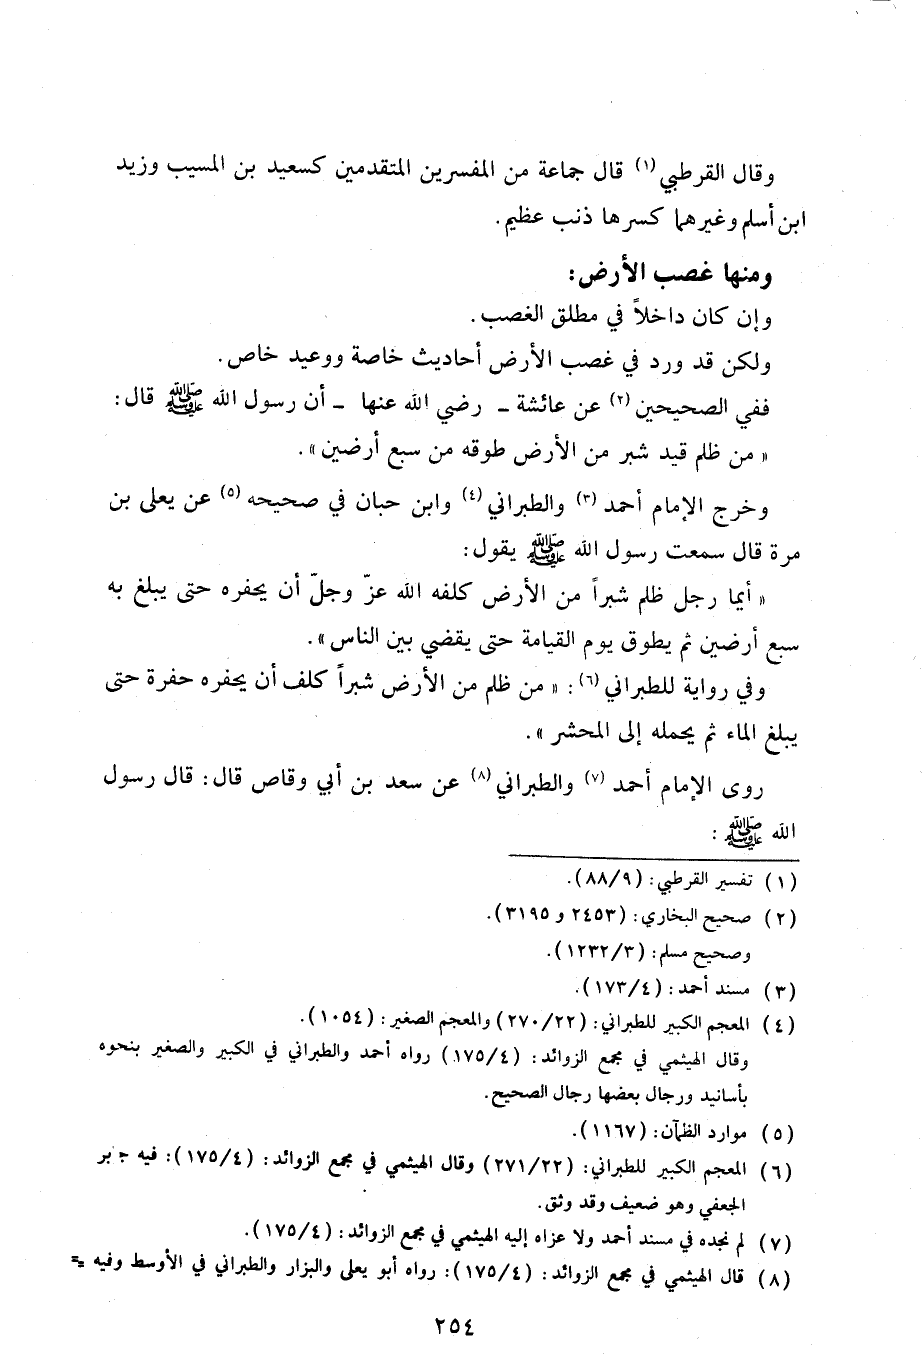 وقال القرطبي (١) قال جماعة من المفسرين المتقدمين كسعيد بن المسيب وزيد
ابن أسلم وغيرهما كسرها ذنب عظيم.
ومنها غصب الأرض:
وإن كان داخلاً في مطلق الغصب.
ولكن قد ورد في غصب الأرض أحاديث خاصة ووعيد خاص.
ففي الصحيحين (٢) عن عائشة ـ رضي الله عنها ـ أن رسول الله ﷺ قال:
« من ظلم قيد شبر من الأرض طوقه من سبع أرضين».
وخرج الإمام أحمد (٣) والطبراني (٤) وابن حبان في صحيحه (٥) عن يعلى بن
مرة قال سمعت رسول الله ﷺ يقول:
« أيما رجل ظلم شبراً من الأرض كلفه الله عزّ وجلّ أن يحفره حتى يبلغ به
سبع أرضين ثم يطوق يوم القيامة حتى يقضي بين الناس ».
وفي رواية للطبراني (٦): « من ظلم من الأرض شبراً كلف أن يحفره حفرة حتى
يبلغ الماء ثم يحمله إلى المحشر ».
روى الإمام أحمد (٧) والطبراني (٨) عن سعد بن أبي وقاص قال: قال رسول
الله ﷺ :
(١) تفسير القرطبي: (٨٨/٩).
(٢) صحيح البخاري: (٢٤٥٣ و ٣١٩٥).
وصحيح مسلم: (١٢٣٢/٣).
(٣) مسند أحمد: (١٧٣/٤).
(٤) المعجم الكبير للطبراني: (٢٧٠/٢٢) والمعجم الصغير: (١٠٥٤).
وقال الهيثمي في مجمع الزوائد: (١٧٥/٤) رواه أحمد والطبراني في الكبير والصغير بنحوه
بأسانيد ورجال بعضها رجال الصحيح.
(٥) موارد الظمآن: (١١٦٧).
(٦) المعجم الكبير للطبراني: (٢٧١/٢٢) وقال الهيثمي في مجمع الزوائد: (١٧٥/٤): فيه جابر
الجعفي وهو ضعيف وقد وثق.
(٧) لم نجده في مسند أحمد ولا عزاه إليه الهيثمي في مجمع الزوائد: (١٧٥/٤).
(٨) قال الهيثمي في مجمع الزوائد: (١٧٥/٤): رواه أبو يعلى والبزار والطبراني في الأوسط وفيه =
٢٥٤